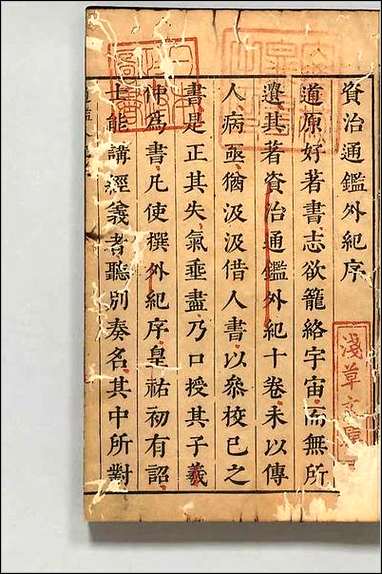 資治通鑑外紀序
道原好著書志欲籠絡宇宙而無所
遺其著資治通鑑外紀十卷未以傳
人病亟猶汲汲借人書以叅校已之
書是正其失氣垂盡乃口授其子羲
仲爲書凡使撰外紀序皇祐初有詔
士能講經義者聽別奏名其中所對
淺草文庫